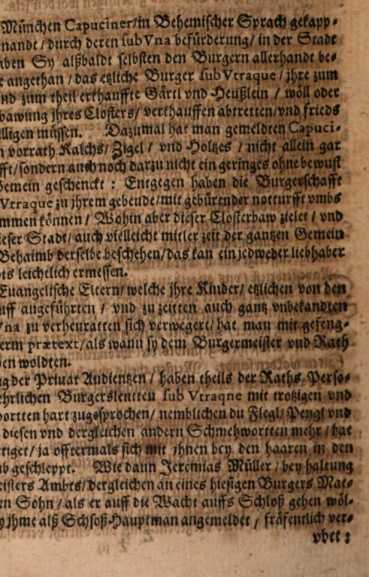 München Capuciner/in Behemischer Sprach gekapp-
nandt / durch deren sub Vna befürderung / in der Stadt
aben Sy alßbaldt selbsten den Burgern allerhandt be-
e angethan / das etzliche Burger sub Vtraque / jhre zum
nd zum theil erkauffte Gärtl vnd Heußlein / wöll oder
bawung jhres Closters / verkauffen abtretten / vnd frieds
illigen müssen. Dazumal hat man gemeldten Capuci-
n vorrath Kalchs / Zigel / vnd Holtzes / nicht allein gar
fft / sondern auch noch darzu nicht ein geringes ohne bewust
Gemein geschenckt : Entgegen haben die Burgerschafft
Vtraque zu jhrem gebeude / mit gebürender notturfft vmbs
ommen können / Wohin aber dieser Closterbaw zielet / vnd
ieser Stadt / auch vielleicht mitler zeit der gantzen Gemein
Behaimb derselbe beschehen / das kan ein jedweder liebhaber
ts leichtlich ermessen.
Euangelische Eltern / welche jhre Kinder / etzlichen von den
auff angeführten / vnd zu zeitten auch gantz vnbekandten
Vna zu verheuratten sich verwegert / hat man mit gefeng-
erm prætext / als wann sy dem Burgermeister vnd Rath
ben woldten.
ng der Priuat Audientzen / haben theils der Raths Perso-
ehrlichen Burgersleutten sub Vtraque mit trotzigen vnd
wortten hart zugesprochen / nemblichen du Flegl / Pengl vnd
diesen vnd dergleichen andern Schmehwortten mehr / hat
rtiget / ja offtermals sich mit jhnen bey den haaren in den
ub geschleppt. Wie dann Jeremias Müller / bey haltung
eisters Ambts / dergleichen an eines hiesigen Burgers Mat-
en Sohn / als er auff die Wacht auffs Schloß gehen wöl-
y jhme alß Schloß-Hauptman angemeldet / fräfentlich ver-
vbet :